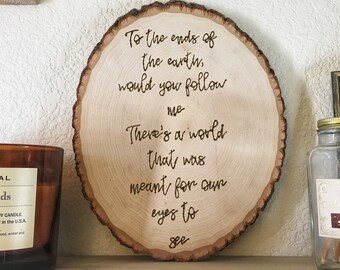 To the ends of
the earth,
would you follow
me
There's a world
that was
meant for our
eyes to
see
AL
ds
Y CANDLE.
in the U.S.A.